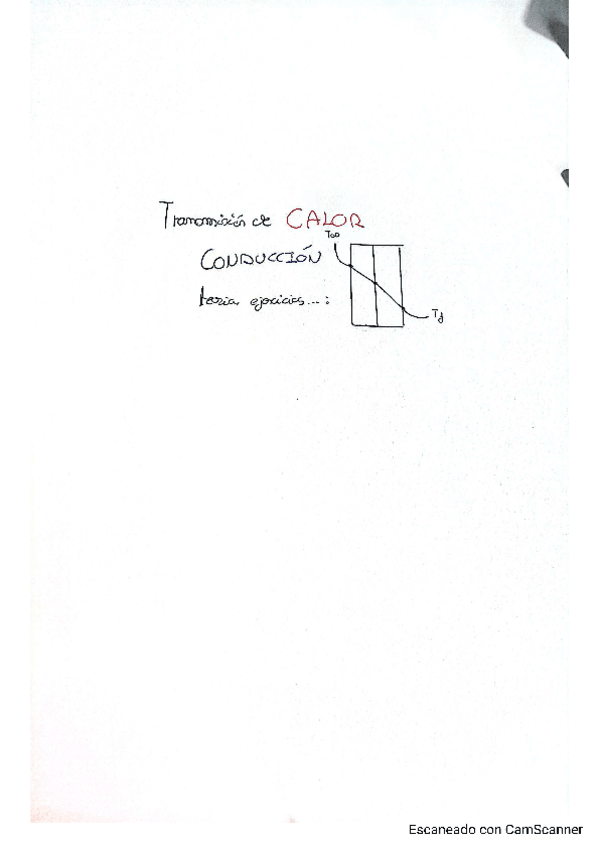 Transmisión de CALOR
T∞
CONDUCCIÓN
teoría ejercicios...:
Tf
Escaneado con CamScanner